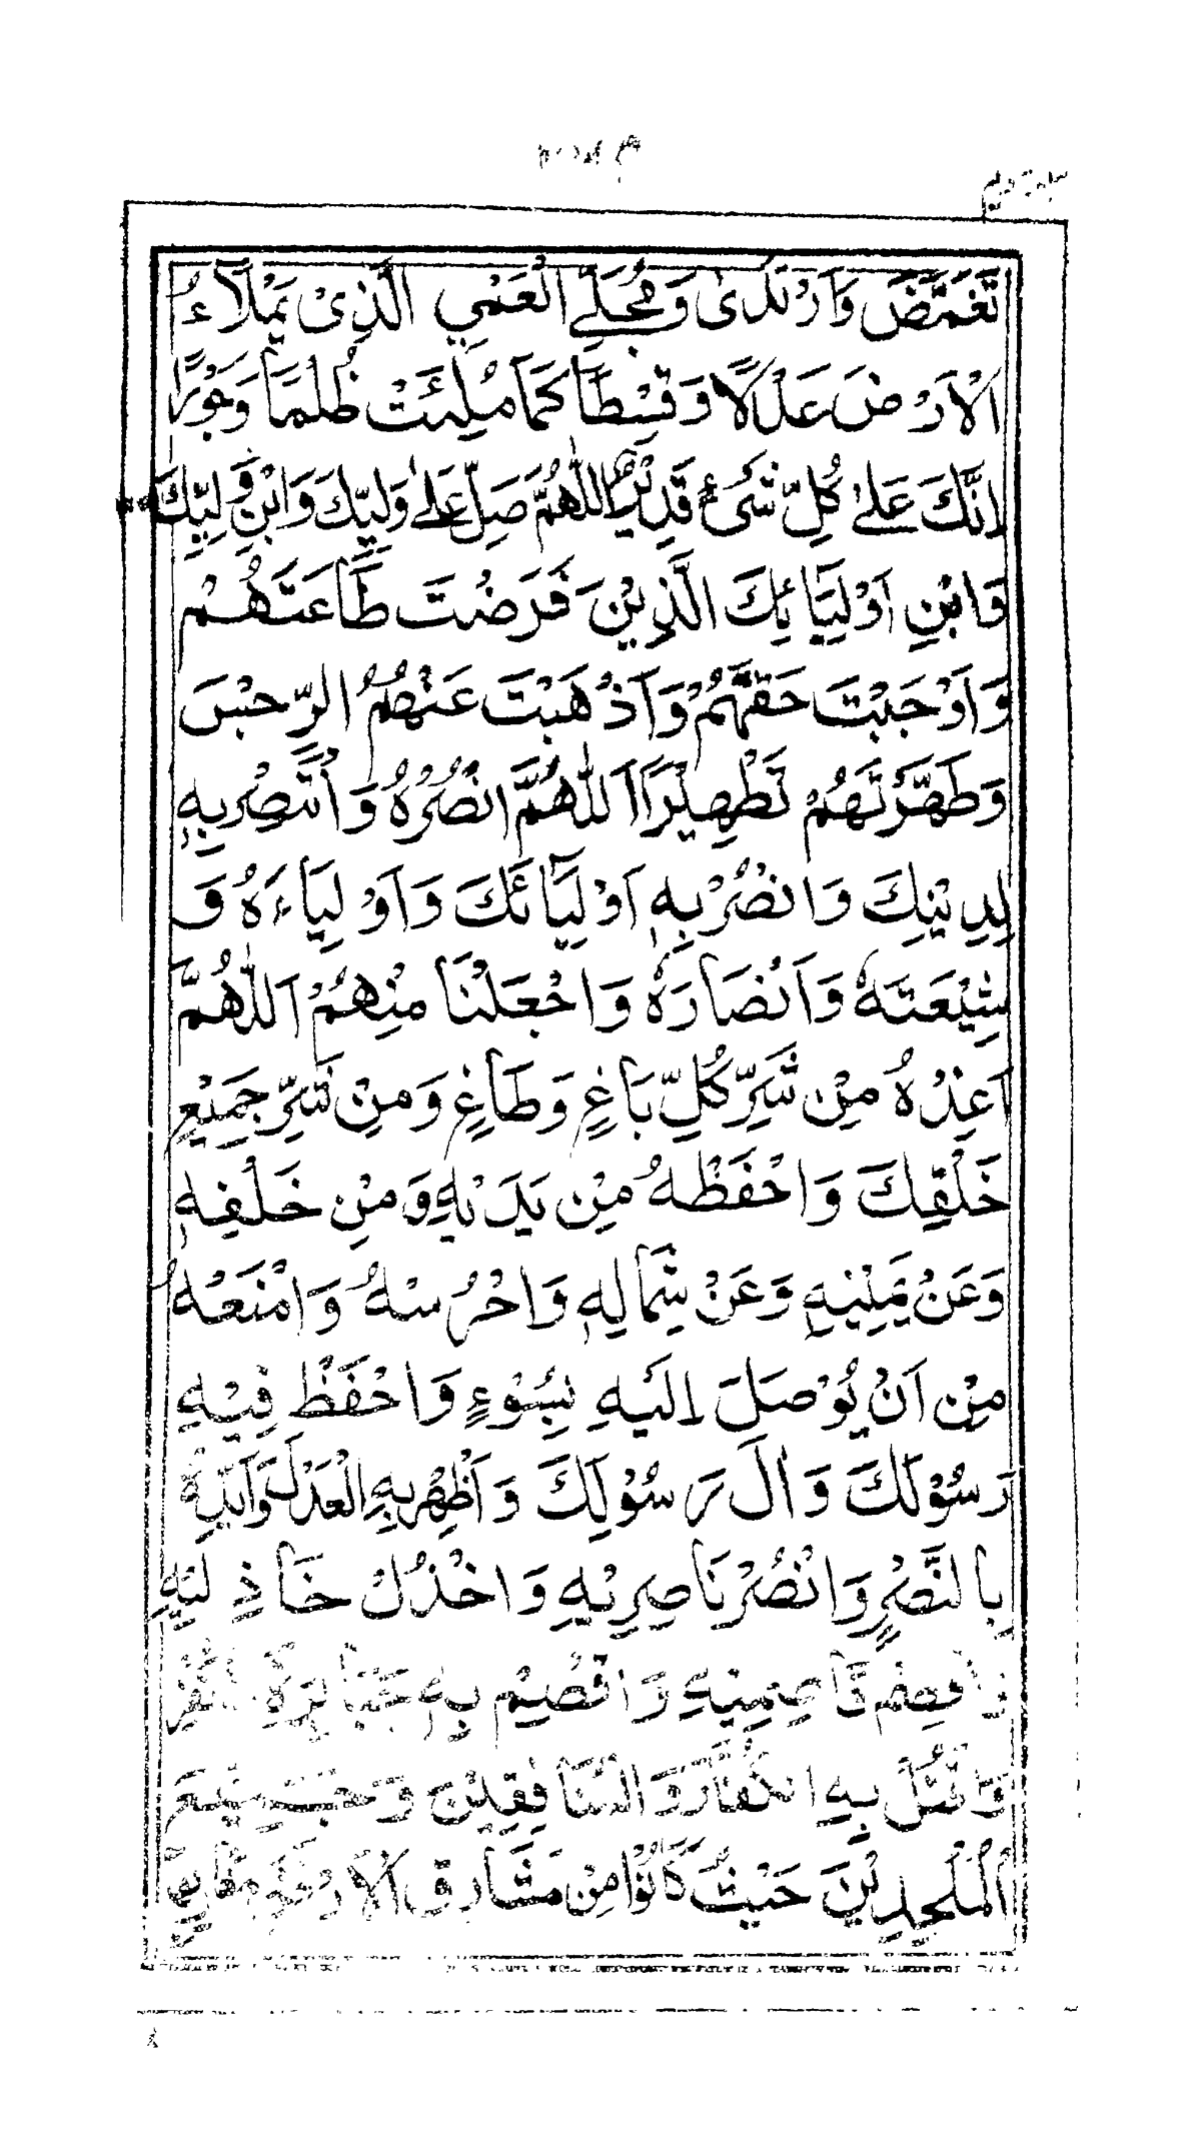 تَغَمَّضَ وَارْتَدىٰ وَمُجَلِّي الْعَمْيِ الَّذِىْ يَمْلَآءُ
الْاَرْضَ عَدْلًا وَقِسْطًا كَمَا مُلِئَتْ ظُلْمًا وَجَوْرًا
اِنَّكَ عَلىٰ كُلِّ شَىْءٍ قَدِيْرٌ اَللّٰهُمَّ صَلِّ عَلىٰ وَلِيِّكَ وَابْنِ وَلِيِّكَ
وَابْنِ اَوْلِيَآئِكَ الَّذِيْنَ فَرَضْتَ طَاعَتَهُمْ
وَاَوْجَبْتَ حَقَّهُمْ وَاَذْهَبْتَ عَنْهُمُ الرِّجْسَ
وَطَهَّرْتَهُمْ تَطْهِيْرًا اَللّٰهُمَّ انْصُرْهُ وَانْتَصِرْ بِهٖ
لِدِيْنِكَ وَانْصُرْ بِهٖ اَوْلِيَآئَكَ وَاَوْلِيَاءَهُ وَ
شِيْعَتَهٗ وَاَنْصَارَهٗ وَاجْعَلْنَا مِنْهُمْ اَللّٰهُمَّ
اَعِذْهُ مِنْ شَرِّ كُلِّ بَاغٍ وَطَاغٍ وَمِنْ شَرِّ جَمِيْعِ
خَلْقِكَ وَاحْفَظْهُ مِنْ بَيْنِ يَدَيْهِ وَمِنْ خَلْفِهٖ
وَعَنْ يَمِيْنِهٖ وَعَنْ شِمَالِهٖ وَاحْرُسْهُ وَامْنَعْهُ
مِنْ اَنْ يُوْصَلَ اِلَيْهِ بِسُوْءٍ وَاحْفَظْ فِيْهِ
رَسُوْلَكَ وَاٰلَ رَسُوْلِكَ وَاَظْهِرْ بِهِ الْعَدْلَ وَاَيِّدْهُ
بِالنَّصْرِ وَانْصُرْ نَاصِرِيْهِ وَاخْذُلْ خَاذِلِيْهِ
وَاقْصِمْ قَاصِمِيْهِ وَاقْصِمْ بِهٖ جَبَابِرَةَ الْكُفْرِ
وَاقْتُلْ بِهِ الْكُفَّارَ وَالْمُنَافِقِيْنَ وَجَمِيْعَ
الْمُلْحِدِيْنَ حَيْثُ كَانُوْا مِنْ مَشَارِقِ الْاَرْضِ وَمَغَارِبِهَا